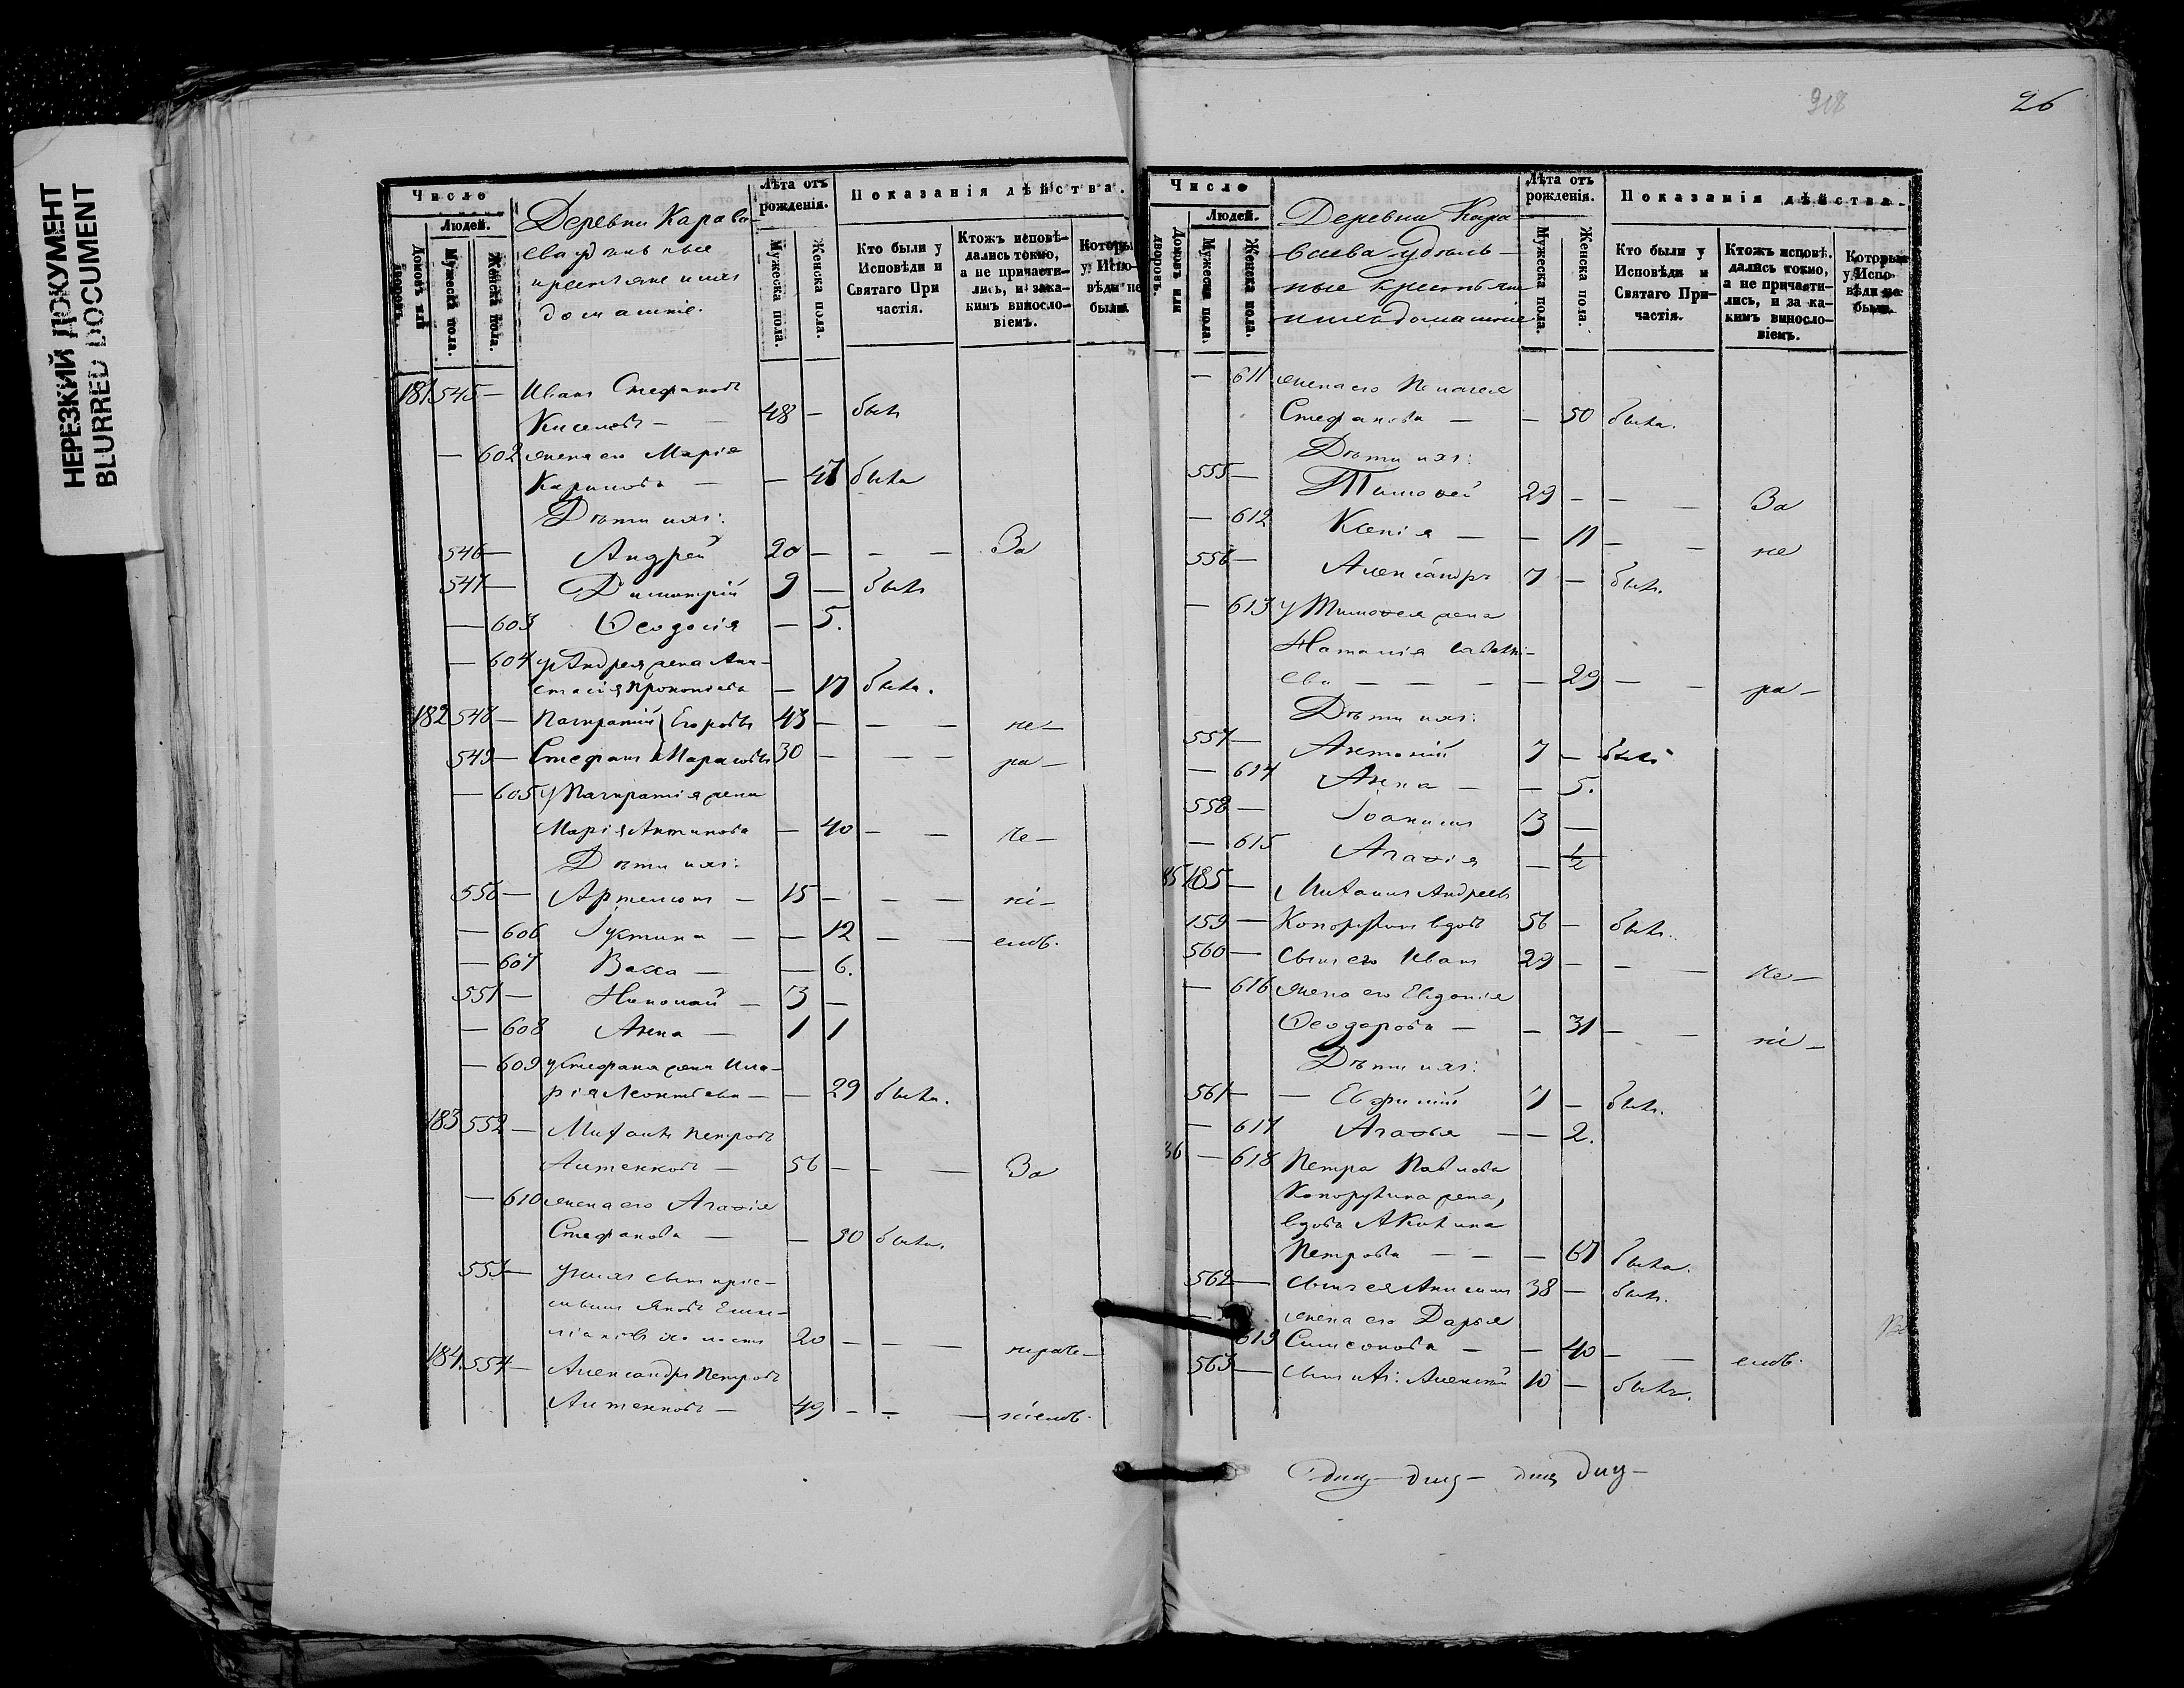 НЕРЕЗКИЙ ДОКУМЕНТ
BLURRED DOCUMENT
Число
Людей.
Домовъ или дворовъ.
Мужеска пола.
Женска пола.
Деревни Карава-
ева удѣльные
крестьяне и ихъ
домашніе.
Лѣта отъ рожденія.
Мужеска пола.
Женска пола.
Показанія дѣйства.
Кто были у Исповѣди и Святаго При частія.
Ктожъ исповѣ-дались токмо, а не причасти-лись, и за ка-кимъ винословіемъ.
Которые у Испо-вѣди не были.
181 545 — Иванъ Стефановъ
Киселевъ — 48 — былъ
— 602 жена его Марія
Карпиова — — 47 была
Дѣти ихъ:
546 — Андрей 20 — — — За
547 — Димитрій 9 — былъ
— 603 Ѳеодосія — 5.
— 604 у Андрея жена Ана-
стасія Прокопіева — 17 была.
182 548 — Панкратій Егоровъ 43 — — — не —
549 — Стефанъ 30 — — — ра —
— 605 у Панкратія жена
Марія Антипова — 40 — — че —
Дѣти ихъ:
550 — Артемонъ — 15 — — — ні —
— 606 Іустина — — 12 — — емъ.
— 607 Васса — — 6.
551 — Николай — 3 —
— 608 Анна — 1 1
— 609 у Стефана жена Ма-
рія Леонтьева — — 29 была.
183 552 — Михаилъ Петровъ
Антенковъ — 56 — — — За
— 610 жена его Агаѳія
Стефанова — — 50 была.
553 — у нихъ сынъ пріе-
мышъ Яковъ Еми-
ліановъ холостъ 20 — — — нераче —
184 554 — Александръ Петровъ
Антенковъ — 49 — — — ніемъ.
318
26
Число
Людей.
Домовъ или дворовъ.
Мужеска пола.
Женска пола.
Деревни Кара-
ваева Удѣль-
ные крестьяне
и ихъ домашніе
Лѣта отъ рожденія.
Мужеска пола.
Женска пола.
Показанія дѣйства.
Кто были у Исповѣди и Святаго При-частія.
Ктожъ исповѣ.дались токмо, а не причасти-лись, и за ка-кимъ винословіемъ.
Которые у Испо-вѣди не были.
— 611 жена его Пелагея
Стефанова — — 50 была.
Дѣти ихъ:
555 — Тимоѳей 29 — — — За
— 612 Ксенія — — 11 — — не
556 — Александръ 7 — былъ.
— 613 у Тимоѳея жена
Наталія Савель-
ева — — — — 29 — — ра —
Дѣти ихъ:
557 — Антоній 7 — былъ
— 614 Анна — — 5.
558 — Іоаннъ 3 —
— 615 Агаѳія — 1/2
185 — Михаилъ Андреевъ
559 — Конорухинъ вдовъ 56 — былъ.
560 — сынъ его Иванъ 29 — — — че —
— 616 жена его Евдокія
Ѳеодорова — — 31 — — ні —
Дѣти ихъ:
561 — — Евѳимій 7 — былъ.
— 617 Агаѳья — — 2.
— 618 Петра Павлова
Конорухина жена,
вдова Акилина
Петрова — — — 67 была.
562 — сынъ ея Анисимъ 38 — былъ.
— жена его Дарья
619 Симеонова — — 40 — — емъ.
563 — сынъ ихъ: Алексѣй 10 — былъ.